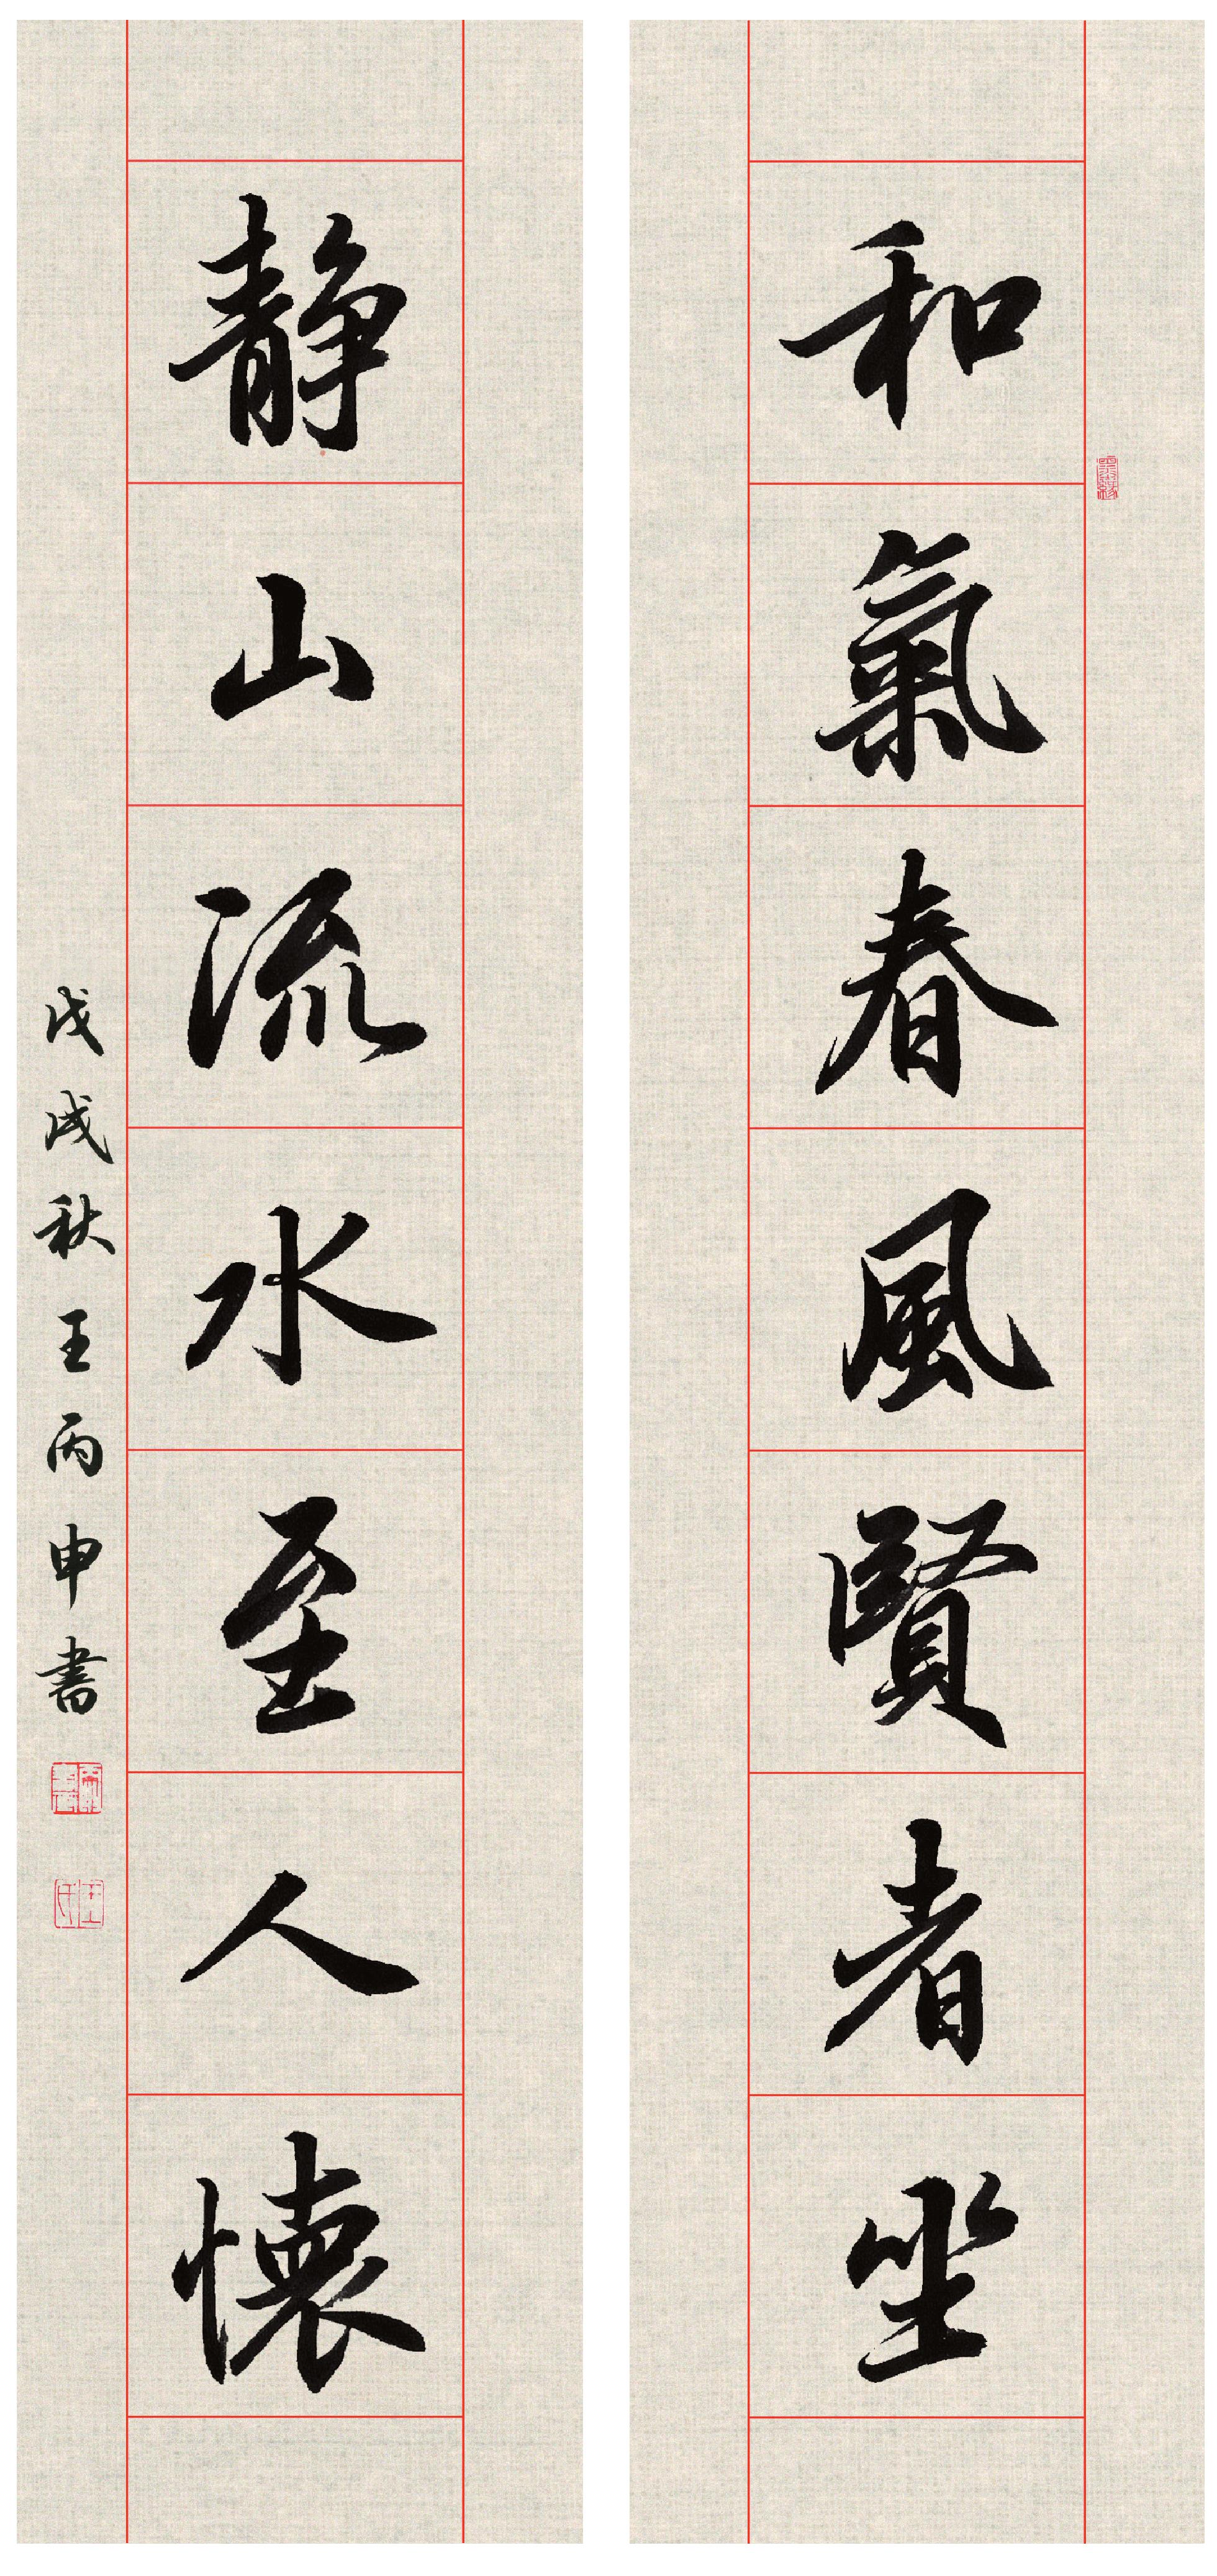 和氣春風賢者坐
静山流水至人懷
戊戌秋王丙申書
王氏